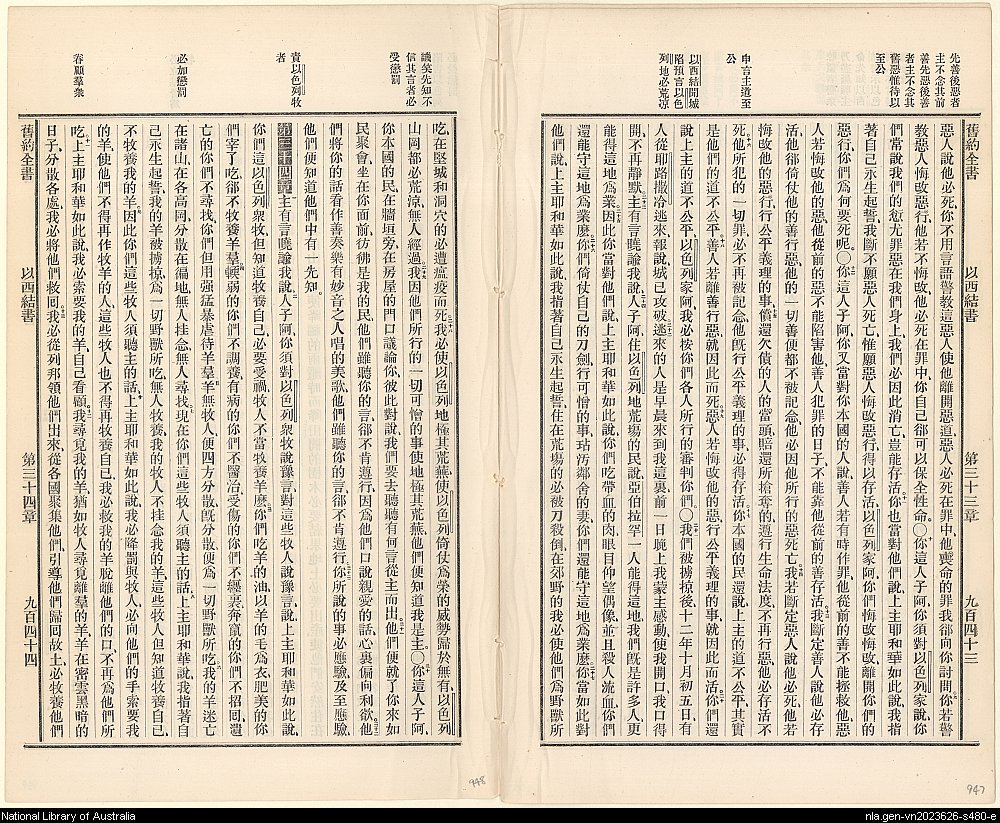 先善後惡者
主不念其前
善先惡後善
者主不念其
舊惡惟待以
至公
申言主道至
公
以西結聞城
陷預言以色
列地必荒凉
舊約全書 以西結書 第三十三章 九百四十三
惡人說他必死、你不用言語警教這惡人使他離開惡道惡人必死在罪中、他喪命的罪我卻向你討問、你若警
教惡人悔改惡行他若不悔改他必死在罪中、你自己卻可以保全性命〇你這人子阿、你須對以色列家說你
們常說我們的愆尤罪惡在我們身上我們必因此消亡豈能存活、你也當對他們說上主耶和華如此說我指
著自己永生起誓、我斷不願惡人死亡、惟願惡人悔改惡行得以存活以色列家阿、你們悔改悔改離開你們的
惡行你們爲何要死呢〇你這人子阿、你又當對你本國的人說善人若有時作罪他從前的善不能拯救他惡
人若悔改他的惡他從前的惡不能陷害他善人犯罪的日子不能靠他從前的善存活我斷定善人說他必存
活他卻倚仗他的善行惡他的一切善便都不被記念他必因他所行的惡死亡我若斷定惡人說他必死他若
悔改他的惡行行公平義理的事償還欠債的人的當頭賠還所搶奪的遵行生命法度不再行惡他必存活不
死他所犯的一切罪必不再被記念他旣行公平義理的事必得存活你本國的民還說上主的道不公平其實
是他們的道不公平善人若離善行惡就因此而死惡人若悔改他的惡行公平義理的事就因此而活你們還
說上主的道不公平以色列家阿我必按你們各人所行的審判你們〇我們被擄掠後十二年十月初五日有
人從耶路撒冷逃來報說城已攻破逃來的人是早晨來到我這裏前一日晚上我蒙主感動使我開口我口得
開、不再靜默主有言曉諭我說人子阿住以色列地荒塲的民說亞伯拉罕一人能得這地我們旣是許多人更
能得這地爲業因此你當對他們說上主耶和華如此說你們吃帶血的肉眼目仰望偶像並且殺人流血你們
還能守這地爲業麼你們倚仗自己的刀劍行可憎的事玷污鄰舍的妻、你們還能守這地爲業麼你當如此對
他們說上主耶和華如此說我指著自己永生起誓住在荒塲的必被刀殺倒在郊野的我必使他們爲野獸所
譏笑先知不
信其言者必
受懲罰
責以色列牧
者
必加懲罰
眷顧羣衆
吃、在堅城和洞穴的必遭瘟疫而死我必使以色列地極其荒蕪使以色列倚仗爲榮的威勢歸於無有、以色列
山岡都必荒涼無人經過我因他們所行的一切可憎的事使地極其荒蕪、他們便知道我是主〇你這人子阿、
你本國的民在牆垣旁在房屋的門口議論你彼此對說我們要去聽聽有何言從主而出他們便就了你來如
民聚會坐在你面前彷彿是我的民他們雖聽你的言卻不肯遵行因爲他們口說親愛的話心裏偏向利欲他
們將你的話看作善奏樂有妙音之人唱的美歌他們雖聽你的言卻不肯遵行你所說的事必應驗及至應驗、
他們便知道他們中有一先知
第三十四章主有言曉諭我說人子阿你須對以色列衆牧說豫言對這些牧人說豫言說上主耶和華如此說、
你們這以色列衆牧但知道牧養自己必要受禍牧人不當牧養羊麼你們吃羊的油以羊的毛爲衣肥美的你
們宰了吃卻不牧養羊羣輭弱的你們不調養有病的你們不醫治受傷的你們不纒裹奔竄的你們不招囘遺
亡的你們不尋找你們但用强猛暴虐待羊羣羊無牧人便四方分散旣分散便爲一切野獸所吃我的羊迷亡
在諸山在各高岡分散在徧地無人挂念無人尋找現在你們這些牧人須聽主的話上主耶和華說我指著自
己永生起誓我的羊被擄掠爲一切野獸所吃無人牧養我的牧人不挂念我的羊這些牧人但知道牧養自己
不牧養我的羊因此你們這些牧人須聽主的話上主耶和華如此說我必降罰與牧人必向他們的手索要我
的羊使他們不得再作牧羊的人這些牧人也不得再牧養自己我必救我的羊脫離他們的口不再爲他們所
吃上主耶和華如此說我必索要我的羊自己看顧我尋覓我的羊猶如牧人尋覓離羣的羊羊在密雲黑暗的
日子分散各處我必將他們救囘我必從列邦領他們出來從各國聚集他們引導他們歸囘故土必牧養他們
舊約全書 以西結書 第三十四章 九百四十四
948
947
National Library of Australia
nla.gen-vn2023626-s480-e